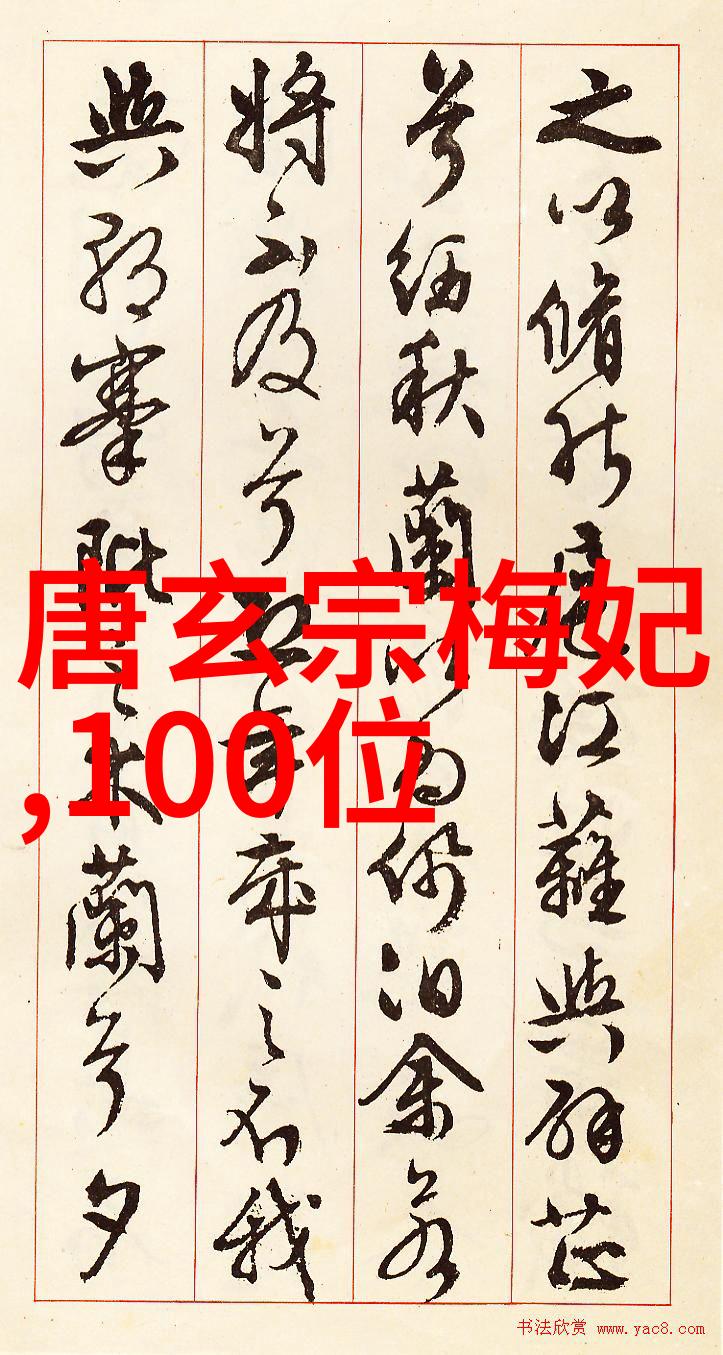 之以脩能扈江蘺與辟芷
兮紉秋蘭以為佩汩余若
將不及兮恐年歲之不我
與朝搴阰之木蘭兮夕
唐玄宗梅妃
,100位
书法欣赏 www.yac8.com